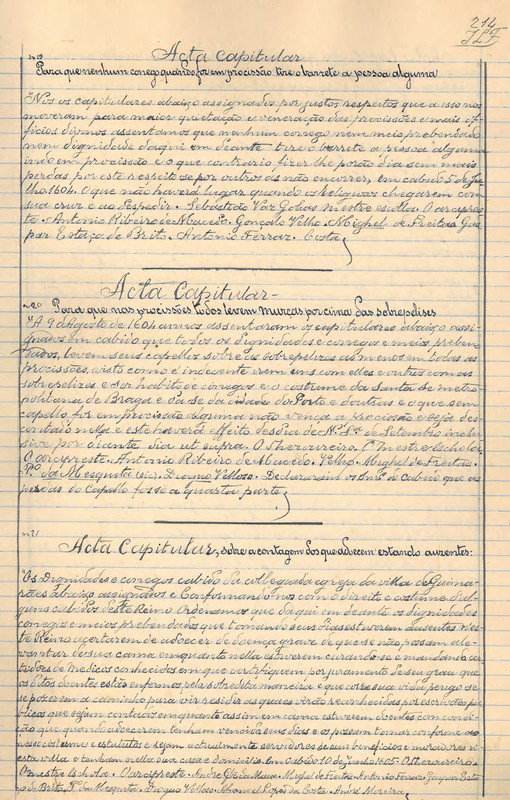 214
JLF
nº19
Acta Capitular
Para que nenhum conego quando for em procissão tire o barrete a pessoa alguma
"Nos os capitulares abaixo assignados por justos respeitos que a isso nos
moveram para maior quietação e veneração das procissões e mais of-
ficios dizemos assentamos que nenhum conego nem meio prebendado
nem dignidade daqui em deante tire o barrete a pessoa alguma
indo em procissão e o que contrario fizer lhe porão dia sem mais
perdas por este respeito se por outros os não encorrer, em cabido 5 de Ju-
lho 1604. O que não haverá lugar quando os religiosos chegarem com
sua cruz e ao despedir. Sebastião Vaz Golias mestre escolla. O arcipres-
te. Antonio Ribeiro de Macedo. Gonçalo Velho. Mighel de Freitas. Gas-
par Estaço de Brito. Antonio Ferraz. Costa
nº20
Acta Capitular
Para que nas procissões todos levem murças por cima das sobrepelises
"A 9 d'Agosto de 1604 annos assentaram os capitulares abaixo assi-
gnados em cabido que todos os dignidades e conegos e meios preben-
dados, levem seus capellos sobre as sobrepelizes ao menos em todas as
procissões, visto como é indecente irem uns com elles e outros com as
sobrepelizes e ser habito de conegos e o costume da santa Sé metro-
politana de Braga e da Sé da cidade do Porto e doutras e o que sem
capello for em procissão alguma não vença a procissão e seja des-
contado nella e este haverá effeito desdia de Nª Sª de Setembro inclu-
sive por diante dia ut supra. O Thezoureiro. O mestre eschola.
O arcypreste. Antonio Ribeiro de Macedo. Velho. Mighel de Freitas.
Pº da Mesquita (sic). Diogno Velloso. Declararam os snres do cabido que as
perdas do capello fosse a quarta parte
nº21
Acta Capitular, sobre a contagem dos que adoecem estando auzentes:
"Os Dignidades e conegos cabido da collegiada egreja da villa de Guima-
rães abaixo assignados e Conformando nos com o direito e costume d'al-
guns cabidos deste Reino Ordenamos que daqui em deante os dignidades
conegos e meios prebendados que tomando seus dias estiverem ausentes n'es-
te Reino acertarem de adoecer de doença grave de que se não possam ale-
vantar de sua cama emquanto nella estiverem curando-se e mandando cer-
tidões de Medicos conhecidos em que certifiquem por juramento de seu grau que
os ditos doentes estão enfermos pela sobredita maneira e que corre sua vida perigo se
se pozerem a caminho para vir residir as quaes virão reconhecidas por escrivães pu-
blicos que sejam contados emquanto assim em cama estiverem doentes com condi-
ção que quando adoecerem tenham vencido seus dias e os possam tomar conforme ao
nossos termos e estatutos e sejam actualmente servidores de seus beneficios e moradores n'
esta villa e tenham nella sua casa e domicilio Em cabido 10 de junho 1605. O thezoureiro.
O mestre Eschola. O arcipreste. Andre Maria Mouxa. Mighel de Freitas Antonio Ferraz. Gaspar Esta-
ço de Brito. Pº da Mesquita. Diogno Velloso. Manoel Lopes da Costa. André Moreira